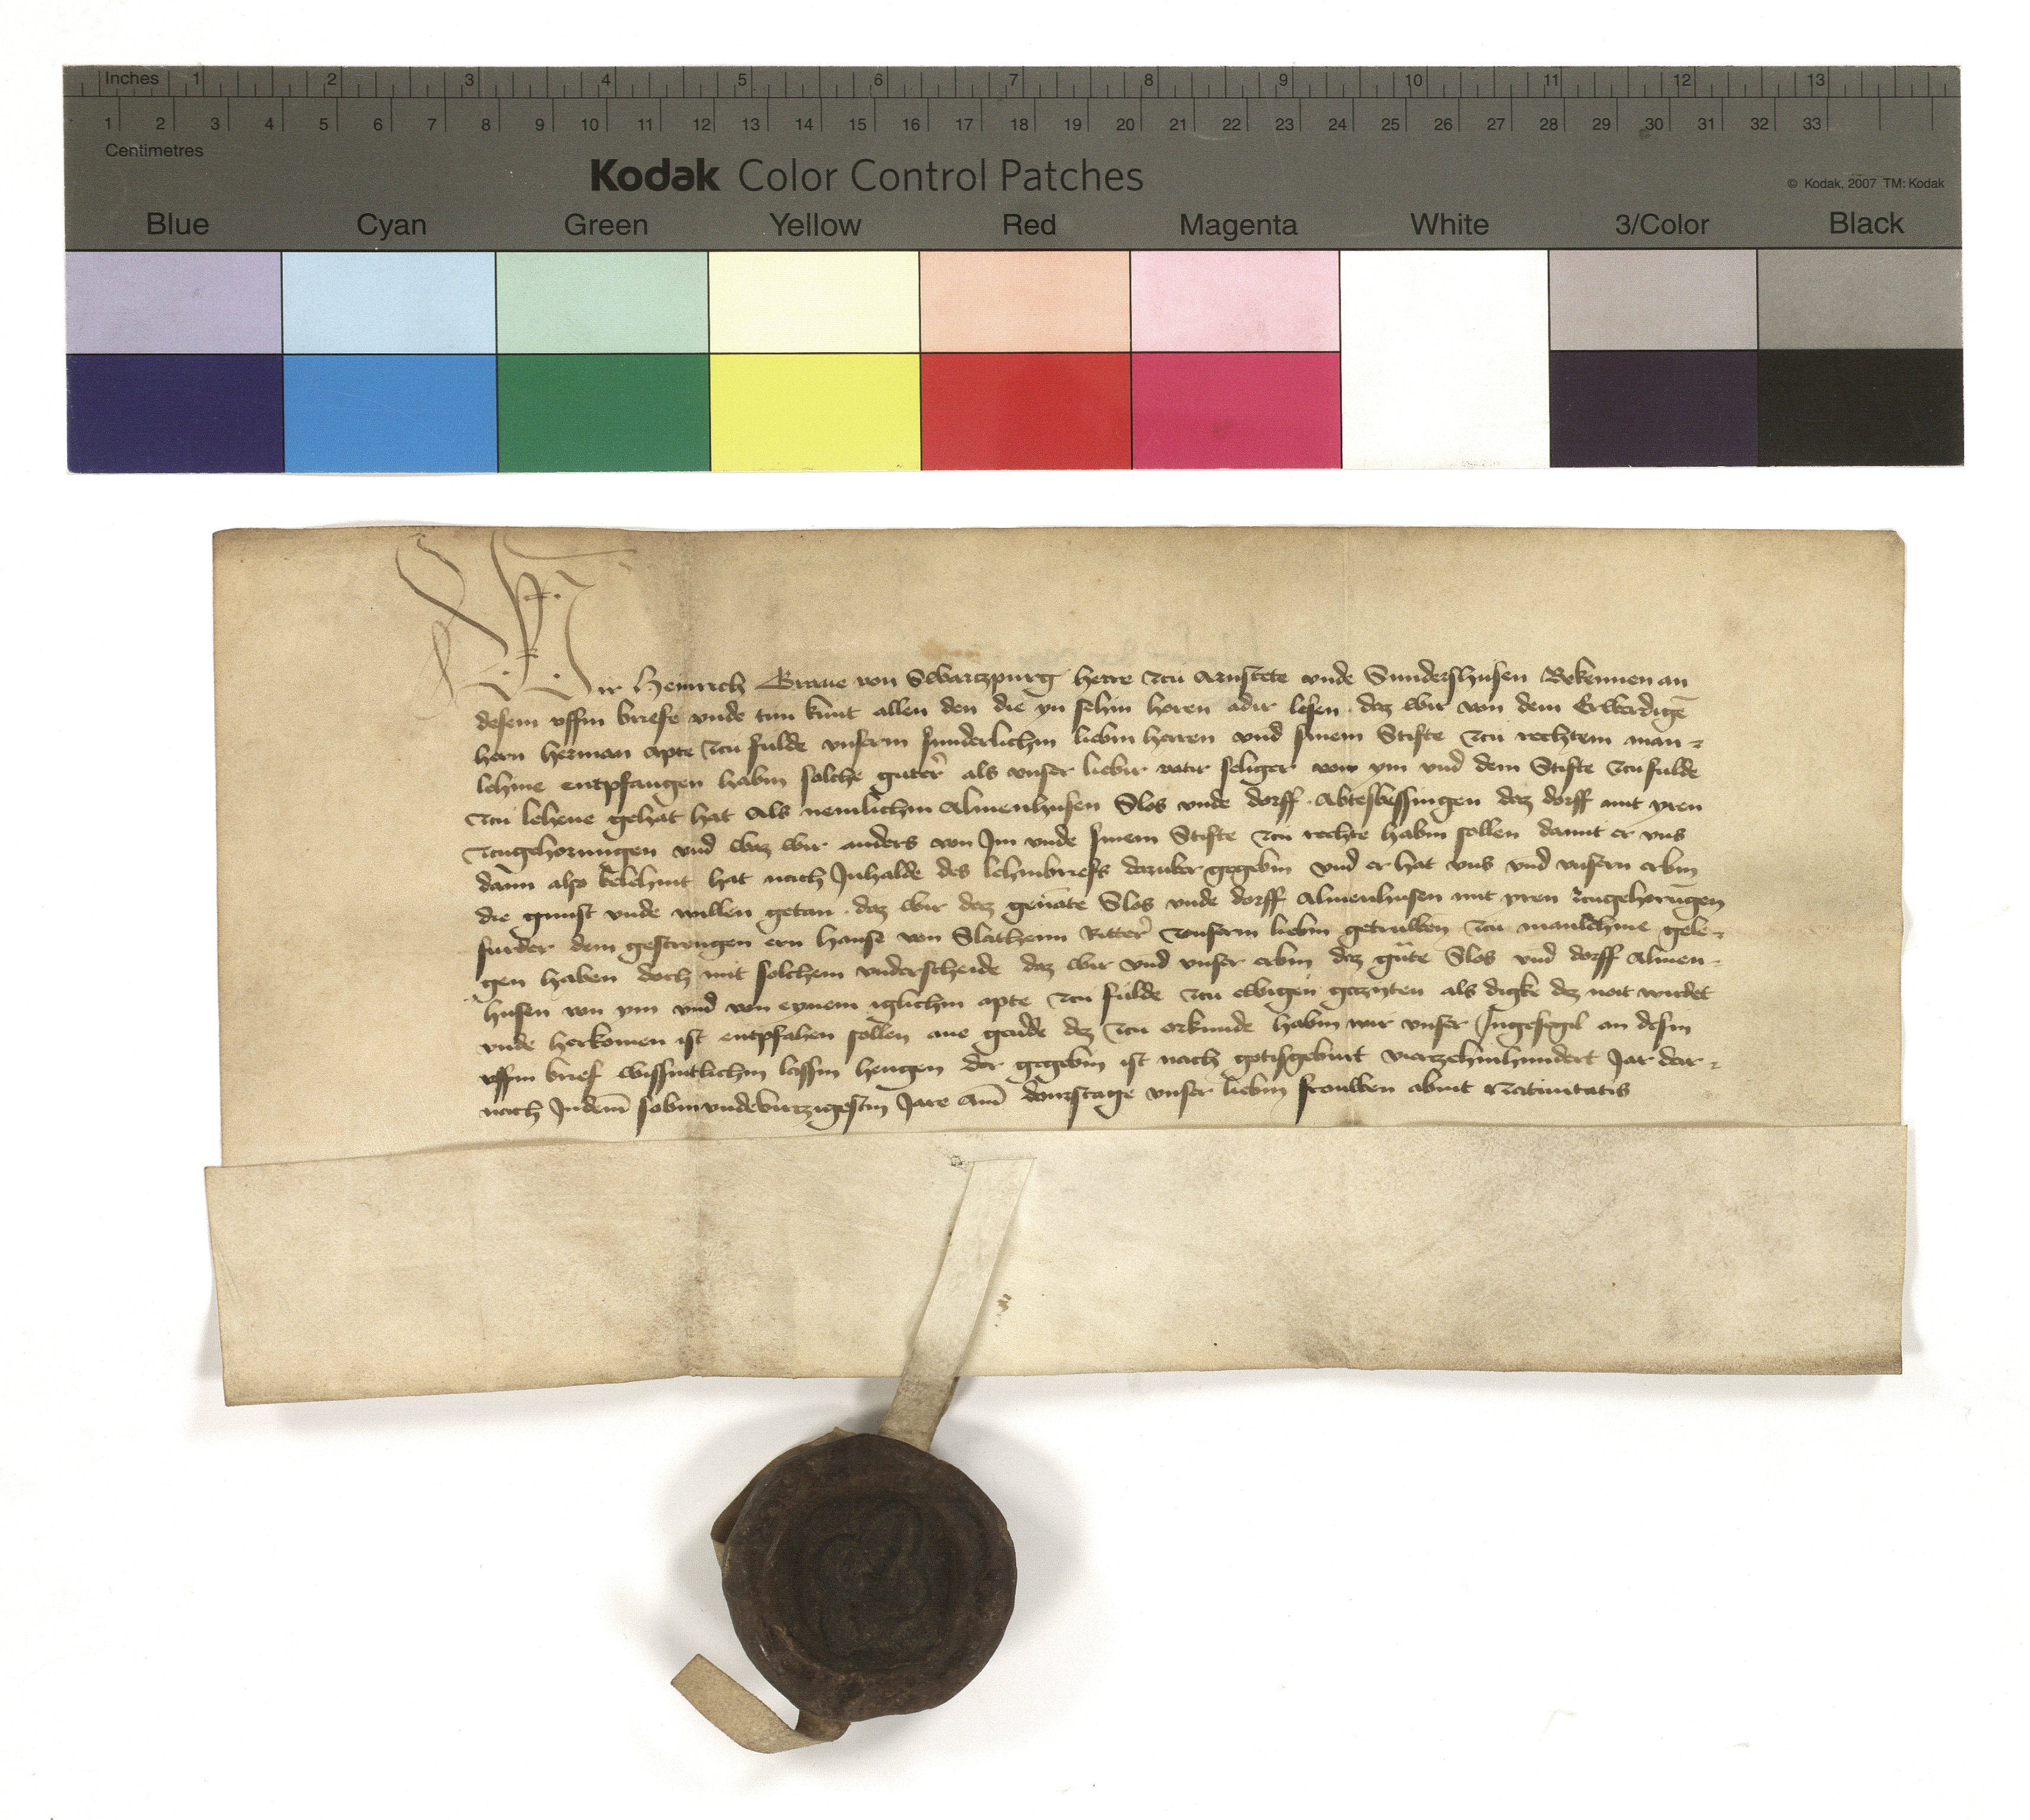 Inches 1 2 3 4 5 6 7 8 9 10 11 12 13
1 2 3 4 5 6 7 8 9 10 11 12 13 14 15 16 17 18 19 20 21 22 23 24 25 26 27 28 29 30 31 32 33
Centimetres
Kodak Color Control Patches
© Kodak, 2007 TM: Kodak
Blue Cyan Green Yellow Red Magenta White 3/Color Black
Wir Heinrich Graue von Swartzpurg herre tzu Arnstete vnde Sundershusen Bekennen an
desem uffin briefe vnde tun kunt allen den die yn sehin horen adir lesen daz wir von dem Erwerdigē
hern herman apte tzu fulde vnserm sunderlichin liebin herren vnd sinem Stifte tzu rechtem man-
lehine entpfangen habin solche guter als vnser liebir vatir seliger von ym vnd dem Stifte tzu fulde
tzu lehene gehat hat Als nemlichin Almenhusen Slos vnde dorff Abtesbessingen daz dorff mit yren
tzugehorungen vnd waz wir anders von Jm vnde sinem Stifte tzu rechte habin sollen damit er vns
dann also belehint hat nach Jnhalde des lehinbriefs darubir gegebin vnd er hat vns vnd vnsern erbin
die gunst vnde willen getan daz wir daz genāte Slos vnde dorff Almenhusen mit yren tzugehorūgen
furder dem gestrengen ern hanse von Slatheim Ritter vnserm liebin getruwen tzu manlehine gele-
gen haben doch mit solchem vnderscheide daz wir vnd vnser erbin daz gnāte Slos vnd dorff Almen-
husen von ym vnd von eynem iglichin apte tzu fulde tzu ewigen getzyten als digke dez noit wirdet
vnde herkomen ist entpfahen sollen ane geuerde dez tzu orkunde habin wir vnser Jngesegil an desin
uffin brief wissintlichin lassin hengen der gegebin ist nach gotisgeburt vierzehinhundert Jar dar-
nach Jndem sobinvndevirzigestin Jare Am donrstage vnser liebin frouwen abint Natiuitatis